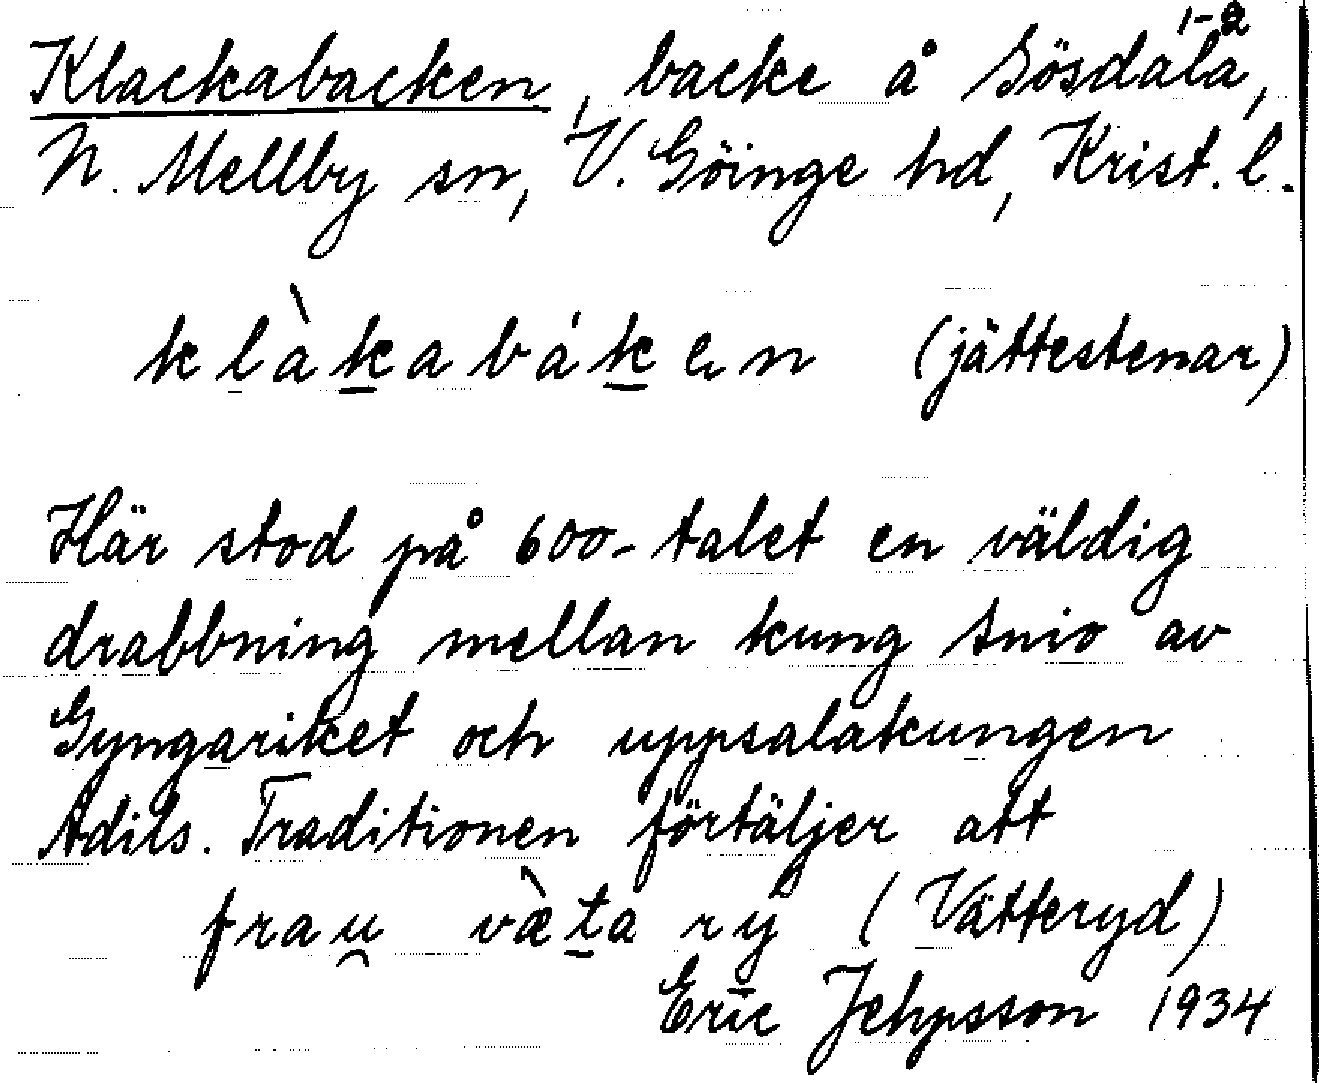 Klackabacken, backe å Sösdala 1-2,
N. Mellby sn, V. Göinge hd, Krist. l.
klàkabáken (jättestenar)
Här stod på 600-talet en väldig
drabbning mellan kung Snio av
Gyngariket och uppsalakungen
Adils. Traditionen förtäljer att
frau væta rý (Vätteryd)
Eric Jehpsson 1934